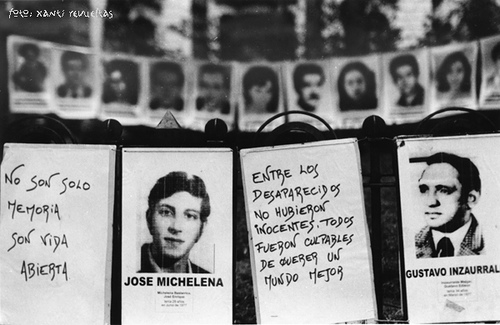 foto: xanti revueltas
NO SON SOLO
MEMORIA
SON VIDA
ABIERTA
JOSE MICHELENA
ENTRE LOS
DESAPARECIDOS
NO HUBIERON
INOCENTES. TODOS
FUERON CULPABLES
DE QUERER UN
MUNDO MEJOR
GUSTAVO INZAURRAL